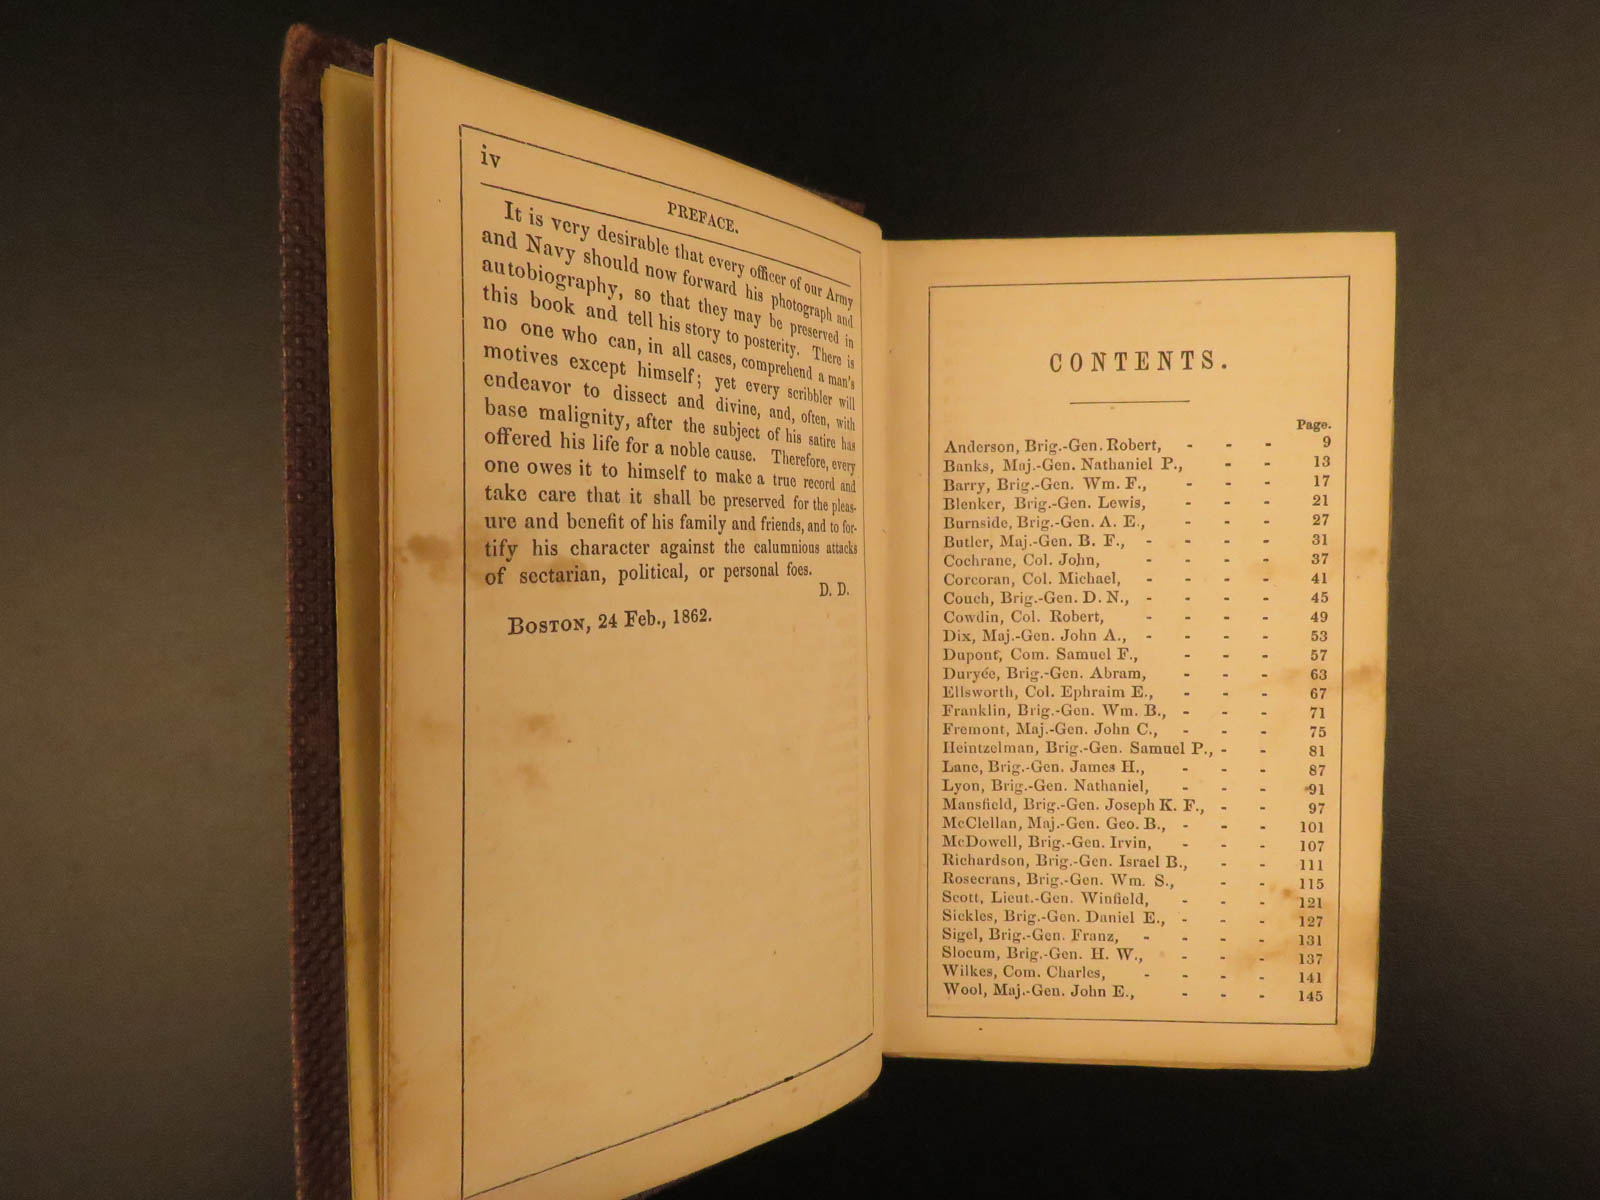 iv
PREFACE.
It is very desirable that every officer of our Army
and Navy should now forward his photograph and
autobiography, so that they may be preserved in
this book and tell his story to posterity. There is
no one who can, in all cases, comprehend a man's
motives except himself; yet every scribbler will
endeavor to dissect and divine, and, often, with
base malignity, after the subject of his satire has
offered his life for a noble cause. Therefore, every
one owes it to himself to make a true record and
take care that it shall be preserved for the pleas-
ure and benefit of his family and friends, and to for-
tify his character against the calumnious attacks
of sectarian, political, or personal foes.
D. D.
BOSTON, 24 Feb., 1862.
CONTENTS.
Page.
Anderson, Brig.-Gen. Robert, - - - 9
Banks, Maj.-Gen. Nathaniel P., - - 13
Barry, Brig.-Gen. Wm. F., - - - 17
Blenker, Brig.-Gen. Lewis, - - - 21
Burnside, Brig.-Gen. A. E., - - - 27
Butler, Maj.-Gen. B. F., - - - - 31
Cochrane, Col. John, - - - - 37
Corcoran, Col. Michael, - - - - 41
Couch, Brig.-Gen. D. N., - - - - 45
Cowdin, Col. Robert, - - - - 49
Dix, Maj.-Gen. John A., - - - - 53
Dupont, Com. Samuel F., - - - 57
Duryée, Brig.-Gen. Abram, - - - 63
Ellsworth, Col. Ephraim E., - - - 67
Franklin, Brig.-Gen. Wm. B., - - - 71
Fremont, Maj.-Gen. John C., - - - 75
Heintzelman, Brig.-Gen. Samuel P., - - 81
Lane, Brig.-Gen. James H., - - - 87
Lyon, Brig.-Gen. Nathaniel, - - - 91
Mansfield, Brig.-Gen. Joseph K. F., - - 97
McClellan, Maj.-Gen. Geo. B., - - - 101
McDowell, Brig.-Gen. Irvin, - - - 107
Richardson, Brig.-Gen. Israel B., - - 111
Rosecrans, Brig.-Gen. Wm. S., - - 115
Scott, Lieut.-Gen. Winfield, - - - 121
Sickles, Brig.-Gen. Daniel E., - - - 127
Sigel, Brig.-Gen. Franz, - - - - 131
Slocum, Brig.-Gen. H. W., - - - 137
Wilkes, Com. Charles, - - - - 141
Wool, Maj.-Gen. John E., - - - 145